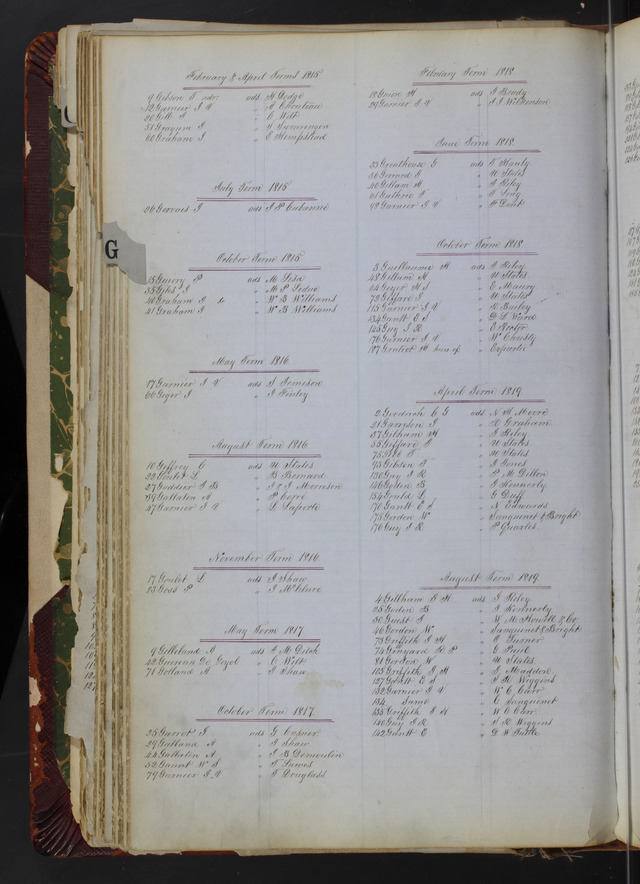 G
February & April Terms 1815
9 Gibson E adr. ads H Dodge
12 Garnier J V " A Christian
20 Gill J " C Wilt
51 Grayum J "
60 Graham J " E Hempstead
July Term 1815
26 Gervais J ads J P Cabanné
October Term 1815
15 Guerry P ads M Lisa
35 Giles J " M P Leduc
40 Graham J " W B Williams
41 Graham J " W B Williams
May Term 1816
17 Garnier J V ads S Jemeson
60 Geiger J " J Finley
August Term 1816
10 Geffrey C ads U States
22 Goulet L " B Bernard
27 J B " J & J Morrison
39 Gallatin A " P Cerré
47 Garnier J V " L Laporte
November Term 1816
17 Goulet L ads J Shaw
23 Goss P " J McClure
May Term 1817
9 Gilleland J ads
42 " C Wilt
71 Golland A " J Shaw
October Term 1817
25 Garrot J ads G Casner
29 Gilland A " J Shaw
44 Gallatin A " J B
52 Gaunt W S " J Lawes
79 Garnier J V " J Douglass
February Term 1818
12 H ads J Brady
29 Garnier J V " J J Wilkinson
June Term 1818
33 Greathouse G ads S Hanly
36 Gerrard J " U States
40 Gillam H " J Riley
61 Guthrie J "
98 Garnier J V " H Dent
October Term 1818
3 Guillaume H ads J Riley
48 Gillam H " U States
64 Geyer H S " E Maury
72 Giffard J " U States
115 Garnier J V " R Bailey
134 Gantt E S " D L Ward
145 Guy J R " E Hector
176 Garnier J V " W Christy
187 Gratiot H heirs of " Exparte
April Term 1819
2 Goodrich C G ads N H Moore
21 Garrydon J " R Graham
37 Gilham H " J Riley
55 Giffard J " U States
75 J " U States
93 Gibbon J " J Jones
130 Guy J R " P M Dillon
146 Golin B " J Kennerly
154 Gould L " E Duff
170 Gantt E S " N Edwards
173 Gordon W " Sanguinet & Bright
176 Guy J R " P Quarles
August Term 1819
4 Gillham E H ads J Riley
25 Godin B " J Kennerly
30 Guest J " W McHowell & Co
46 Gordon W " Sanguinet & Bright
73 Griffith J H " P Turner
74 Grinyard R P " C Paul
81 Gordon W " U States
105 Griffith J H " J Madden
127 Gantt E S " S R Wiggins
132 Garnier J V " W C Carr
134 Same " C Sanguinet
135 Griffith J H " W C Carr
140 Guy J R " S R Wiggins
142 Gantt E " G W Tuttle